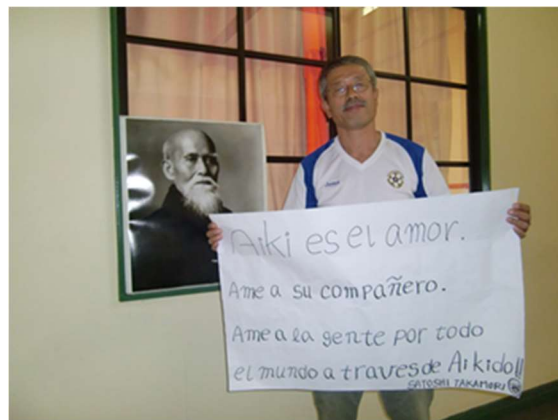 Aiki es el amor.
Ame a su compañero.
Ame a la gente por todo
el mundo a traves de Aikido!!
SATOSHI TAKAMORI